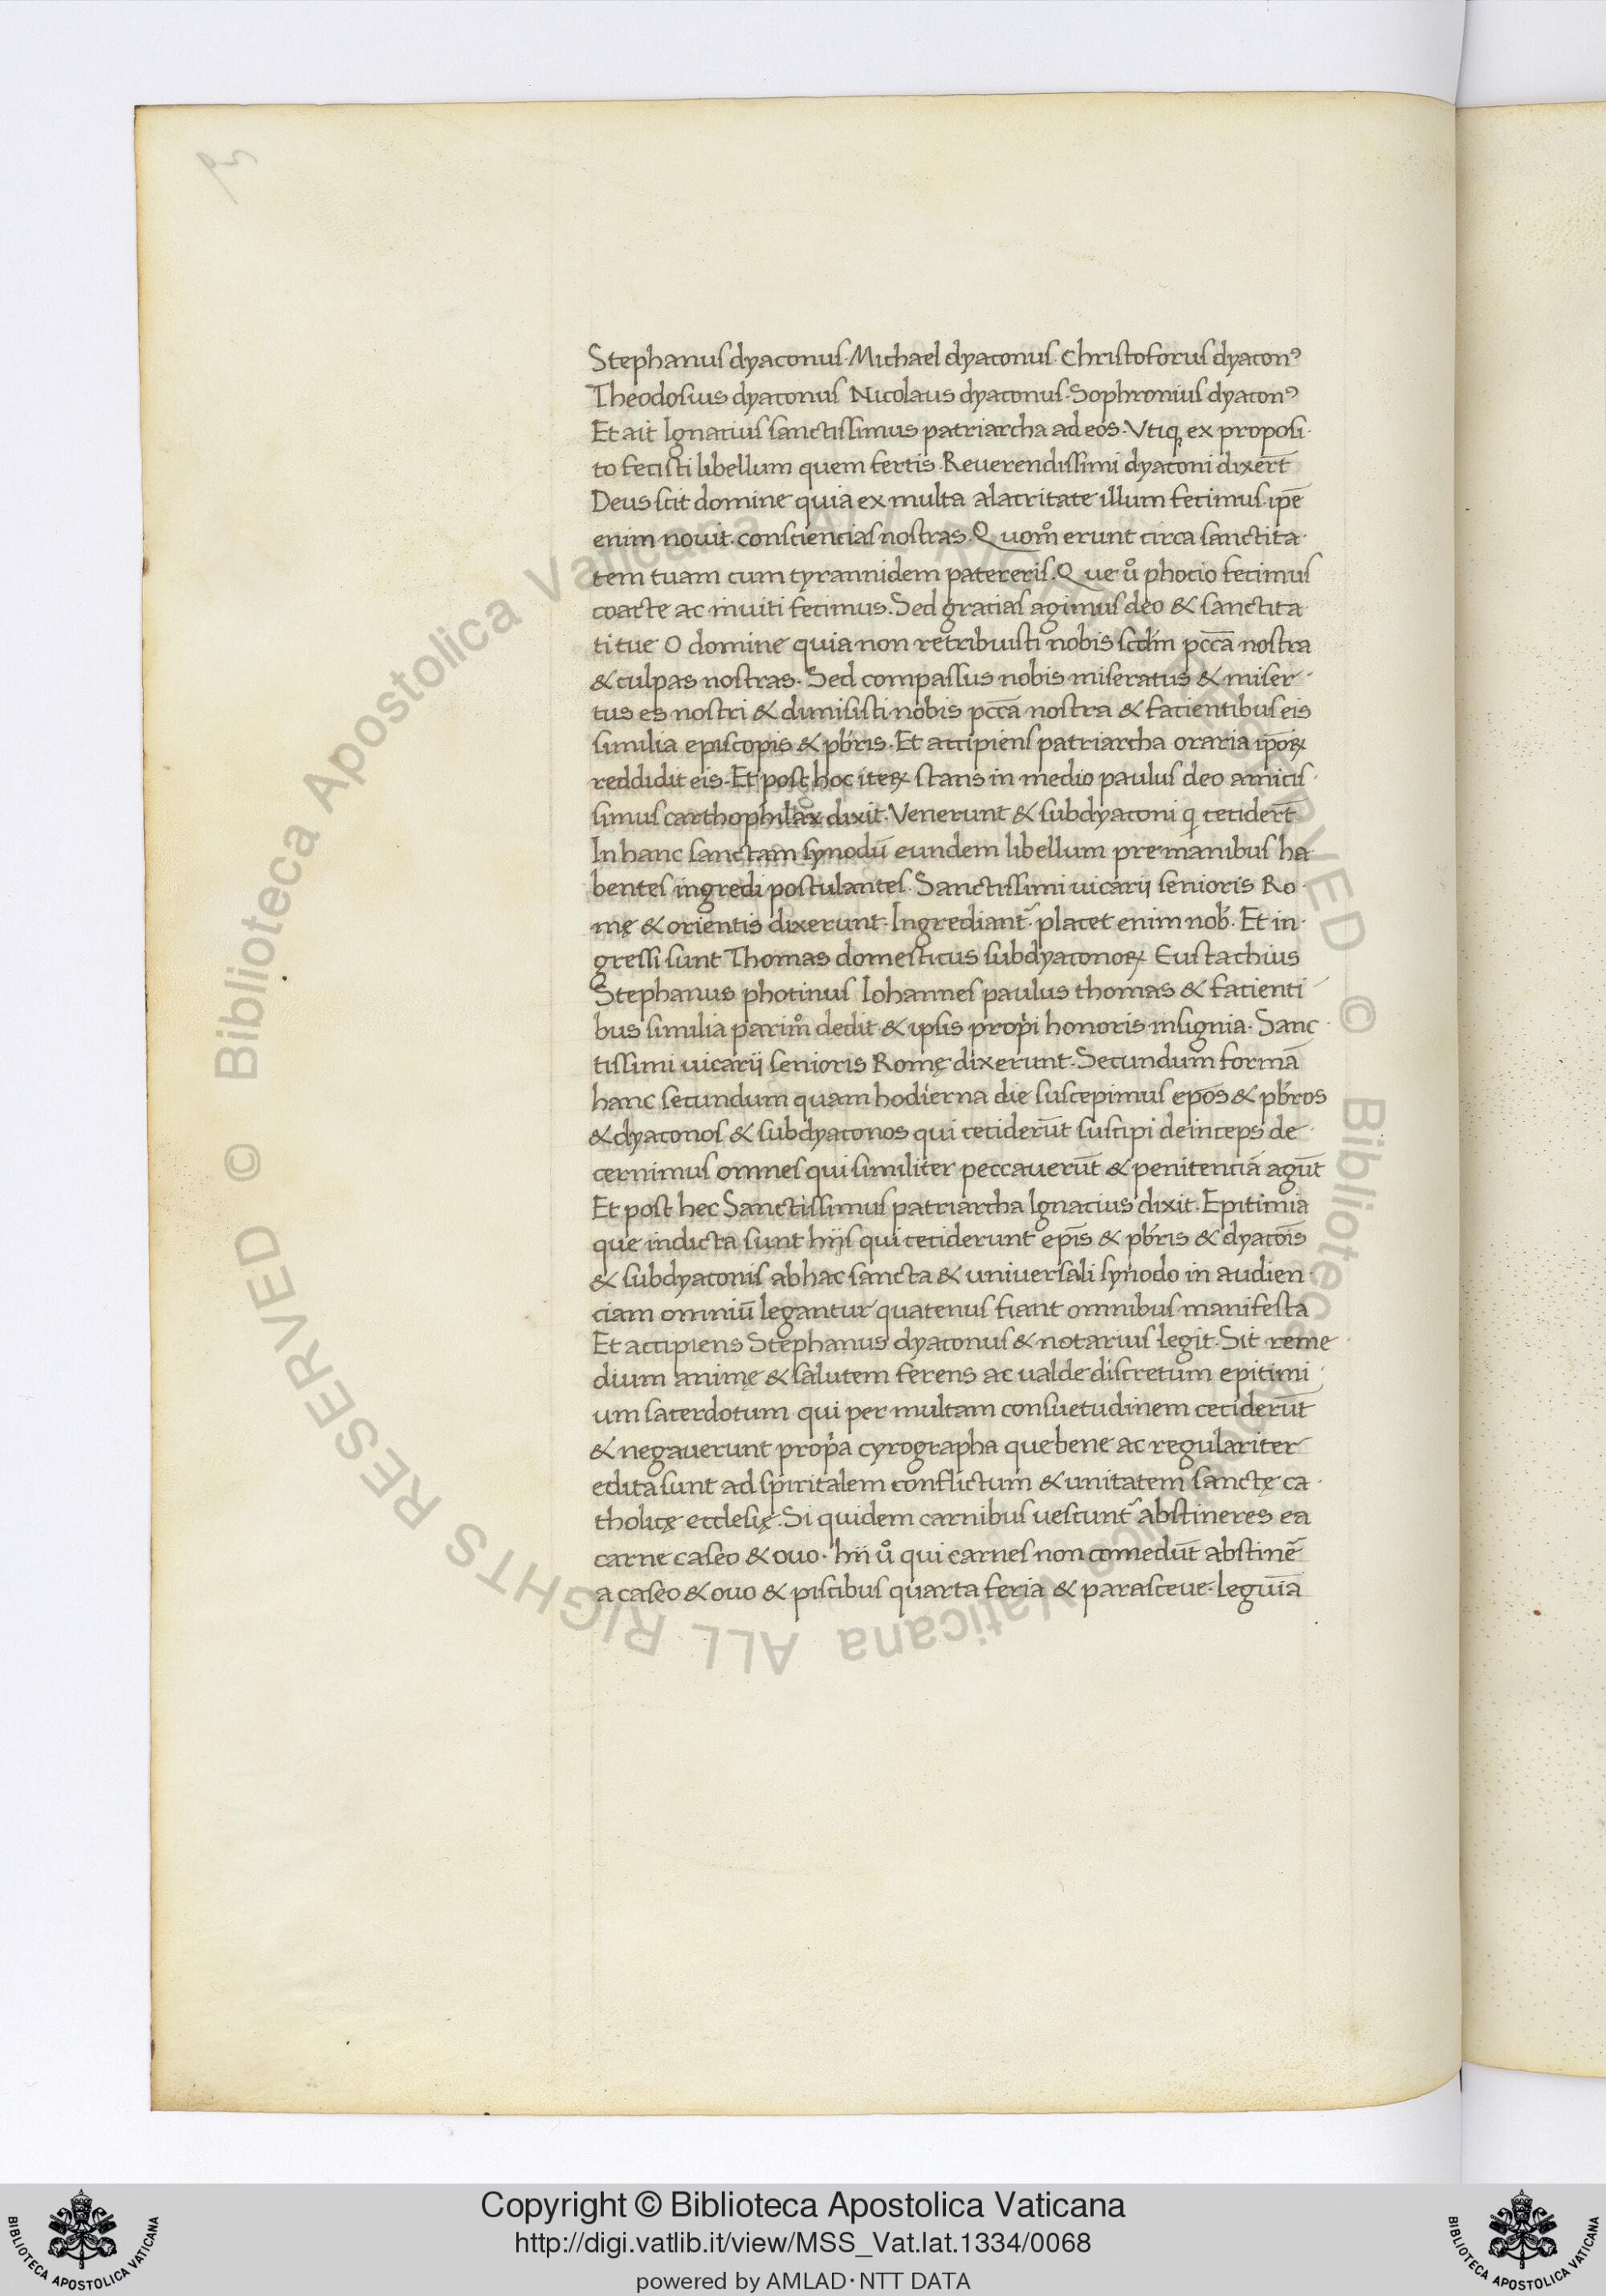 Stephanus dyaconus. Michael dyaconus. Christoforus dyaconꝰ
Theodosius dyaconus Nicolaus dyaconus. Sophronius dyaconꝰ
Et ait Ignacius sanctissimus patriarcha ad eos. Vtiq; ex proposi
to fecisti libellum quem fertis. Reuerendissimi dyaconi dixer̄t
Deus scit domine quia ex multa alacritate illum fecimus. ip̄e
enim nouit. consciencias nostras. Quom̊ erunt circa sanctita
tem tuam cum tyrannidem patereris. Que ů phocio fecimus
coacte ac inuiti fecimus. Sed gracias agimus deo & sanctita
ti tue O domine quia non retribuisti nobis scd́m pcc̄a nostra
& culpas nostras. Sed compassus nobis miseratus & miser
tus es nostri & dimisisti nobis pcc̄a nostra & facientibus eis
similia episcopis & pb́ris. Et accipiens patriarcha oraria ip̄oꝝ
reddidit eis. Et post hoc iteꝝ stans in medio paulus deo amicis
simus carthophilax dixit. Venerunt & subdyaconi q̣ cecider̄t
In hanc sanctam synodū eundem libellum pre manibus ha
bentes ingredi postulantes. Sanctissimi uicarij senioris Ro
mę & orientis dixerunt. Ingrediant᷑. placet enim nob́. Et in
gressi sunt Thomas domesticus subdyaconoꝝ Eustachius
Stephanus photinus Iohannes paulus thomas & facienti
bus similia parim̊ dedit & ipsis prop̍i honoris insignia. Sanc
tissimi uicarij senioris Romę dixerunt. Secundum formā
hanc secundum quam hodierna die suscepimus ep̄os & pb́ros
& dyaconos & subdyaconos qui cecider̄ut suscipi deinceps de
cernimus omnes qui similiter peccauer̄ut & penitenciā agūt
Et post hec Sanctissimus patriarcha Ignacius dixit. Epitimia
que indicta sunt hijs qui ceciderunt ep̄is & pb́ris & dyacōis
& subdyaconis ab hac sancta & uniuersali synodo in audien
ciam omniū legantur quatenus fiant omnibus manifesta
Et accipiens Stephanus dyaconus & notarius legit. Sit reme
dium animę & salutem ferens ac ualde discretum epitimi
um sacerdotum qui per multam consuetudinem cecider̄ut
& negauerunt prop̍a cyrographa que bene ac regulariter
edita sunt ad spiritalem conflictum & unitatem sanctę ca
tholicę ecclesię. Si quidem carnibus uescunt᷑ abstineres ea
carne caseo & ouo. hii ů qui carnes non comedūt abstinē
a caseo & ouo & piscibus quarta feria & parasceue. legūia
Copyright © Biblioteca Apostolica Vaticana
http://digi.vatlib.it/view/MSS_Vat.lat.1334/0068
powered by AMLAD · NTT DATA
© Biblioteca Apostolica Vaticana ALL RIGHTS RESERVED
© Biblioteca Apostolica Vaticana ALL RIGHTS RESERVED
BIBLIOTECA APOSTOLICA VATICANA
BIBLIOTECA APOSTOLICA VATICANA